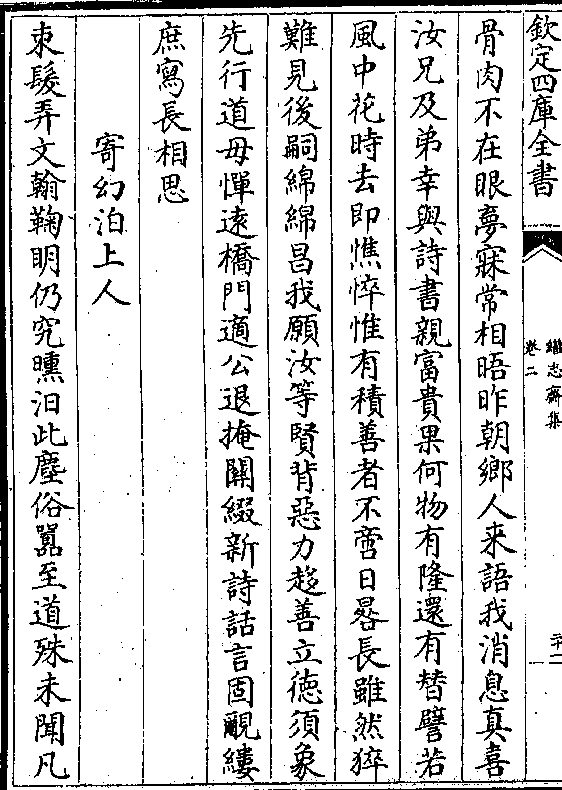 欽定四庫全書
繼志齋集
卷二
二十二
骨肉不在眼夢寐常相晤昨朝鄉人来語我消息真喜
汝兄及弟幸與詩書親富貴果何物有隆還有替譬若
風中花時去即憔悴惟有積善者不啻日晷長雖然猝
難見後嗣綿綿昌我願汝等賢背惡力趍善立徳須象
先行道毋憚逺橋門適公退掩闗綴新詩話言固覼縷
庶寫長相思
寄幻泊上人
束髮弄文翰鞠明仍究曛汩此塵俗嚣至道殊未聞凡